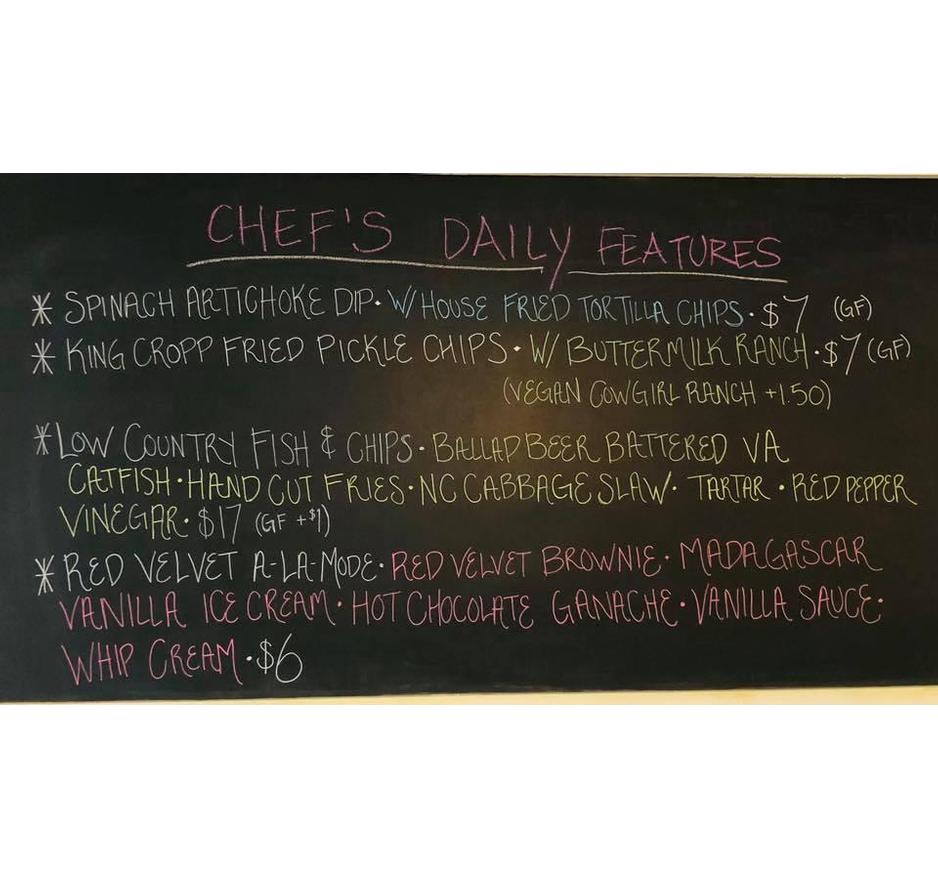 CHEF'S DAILY FEATURES
* SPINACH ARTICHOKE DIP · W/ HOUSE FRIED TORTILLA CHIPS · $7 (GF)
* KING CROPP FRIED PICKLE CHIPS · W/ BUTTERMILK RANCH · $7 (GF)
(VEGAN COWGIRL RANCH +1.50)
* LOW COUNTRY FISH & CHIPS · BALLAD BEER BATTERED VA
CATFISH · HAND CUT FRIES · NC CABBAGE SLAW · TARTAR · RED PEPPER
VINEGAR · $17 (GF +$1)
* RED VELVET A-LA-MODE · RED VELVET BROWNIE · MADAGASCAR
VANILLA ICE CREAM · HOT CHOCOLATE GANACHE · VANILLA SAUCE ·
WHIP CREAM · $6